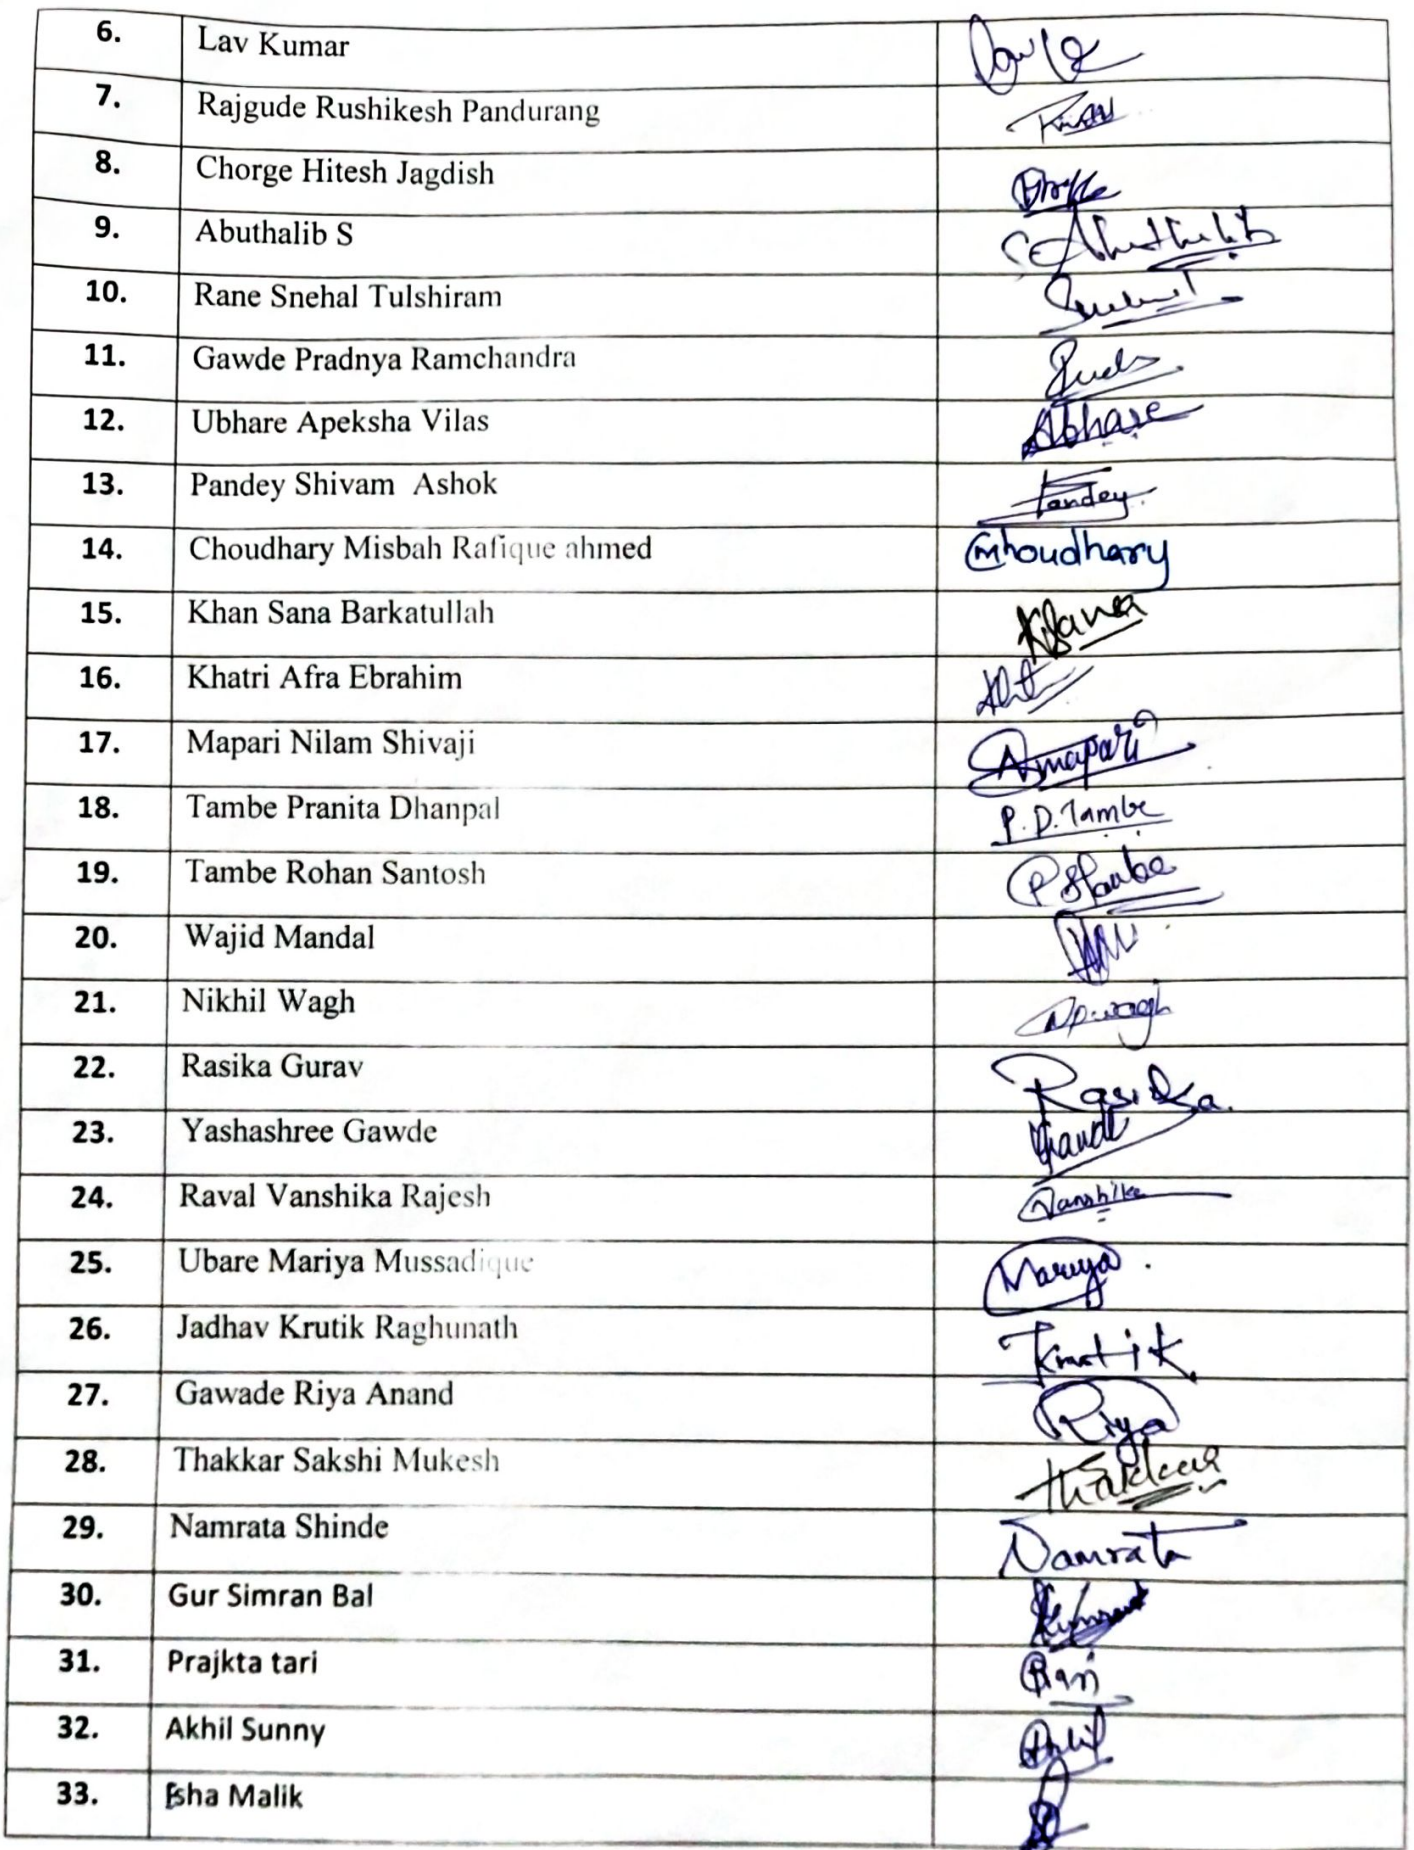 6. Lav Kumar
7. Rajgude Rushikesh Pandurang
8. Chorge Hitesh Jagdish
9. Abuthalib S S Abuthalib
10. Rane Snehal Tulshiram
11. Gawde Pradnya Ramchandra
12. Ubhare Apeksha Vilas
13. Pandey Shivam Ashok Pandey
14. Choudhary Misbah Rafique ahmed Choudhary
15. Khan Sana Barkatullah
16. Khatri Afra Ebrahim
17. Mapari Nilam Shivaji Nmapari
18. Tambe Pranita Dhanpal P.D.Tambe
19. Tambe Rohan Santosh
20. Wajid Mandal
21. Nikhil Wagh
22. Rasika Gurav Rasika.
23. Yashashree Gawde
24. Raval Vanshika Rajesh Vanshika
25. Ubare Mariya Mussadique Mariya
26. Jadhav Krutik Raghunath Krutik
27. Gawade Riya Anand Riya
28. Thakkar Sakshi Mukesh Thakkar
29. Namrata Shinde Namrata
30. Gur Simran Bal
31. Prajkta tari
32. Akhil Sunny Akhil
33. Esha Malik